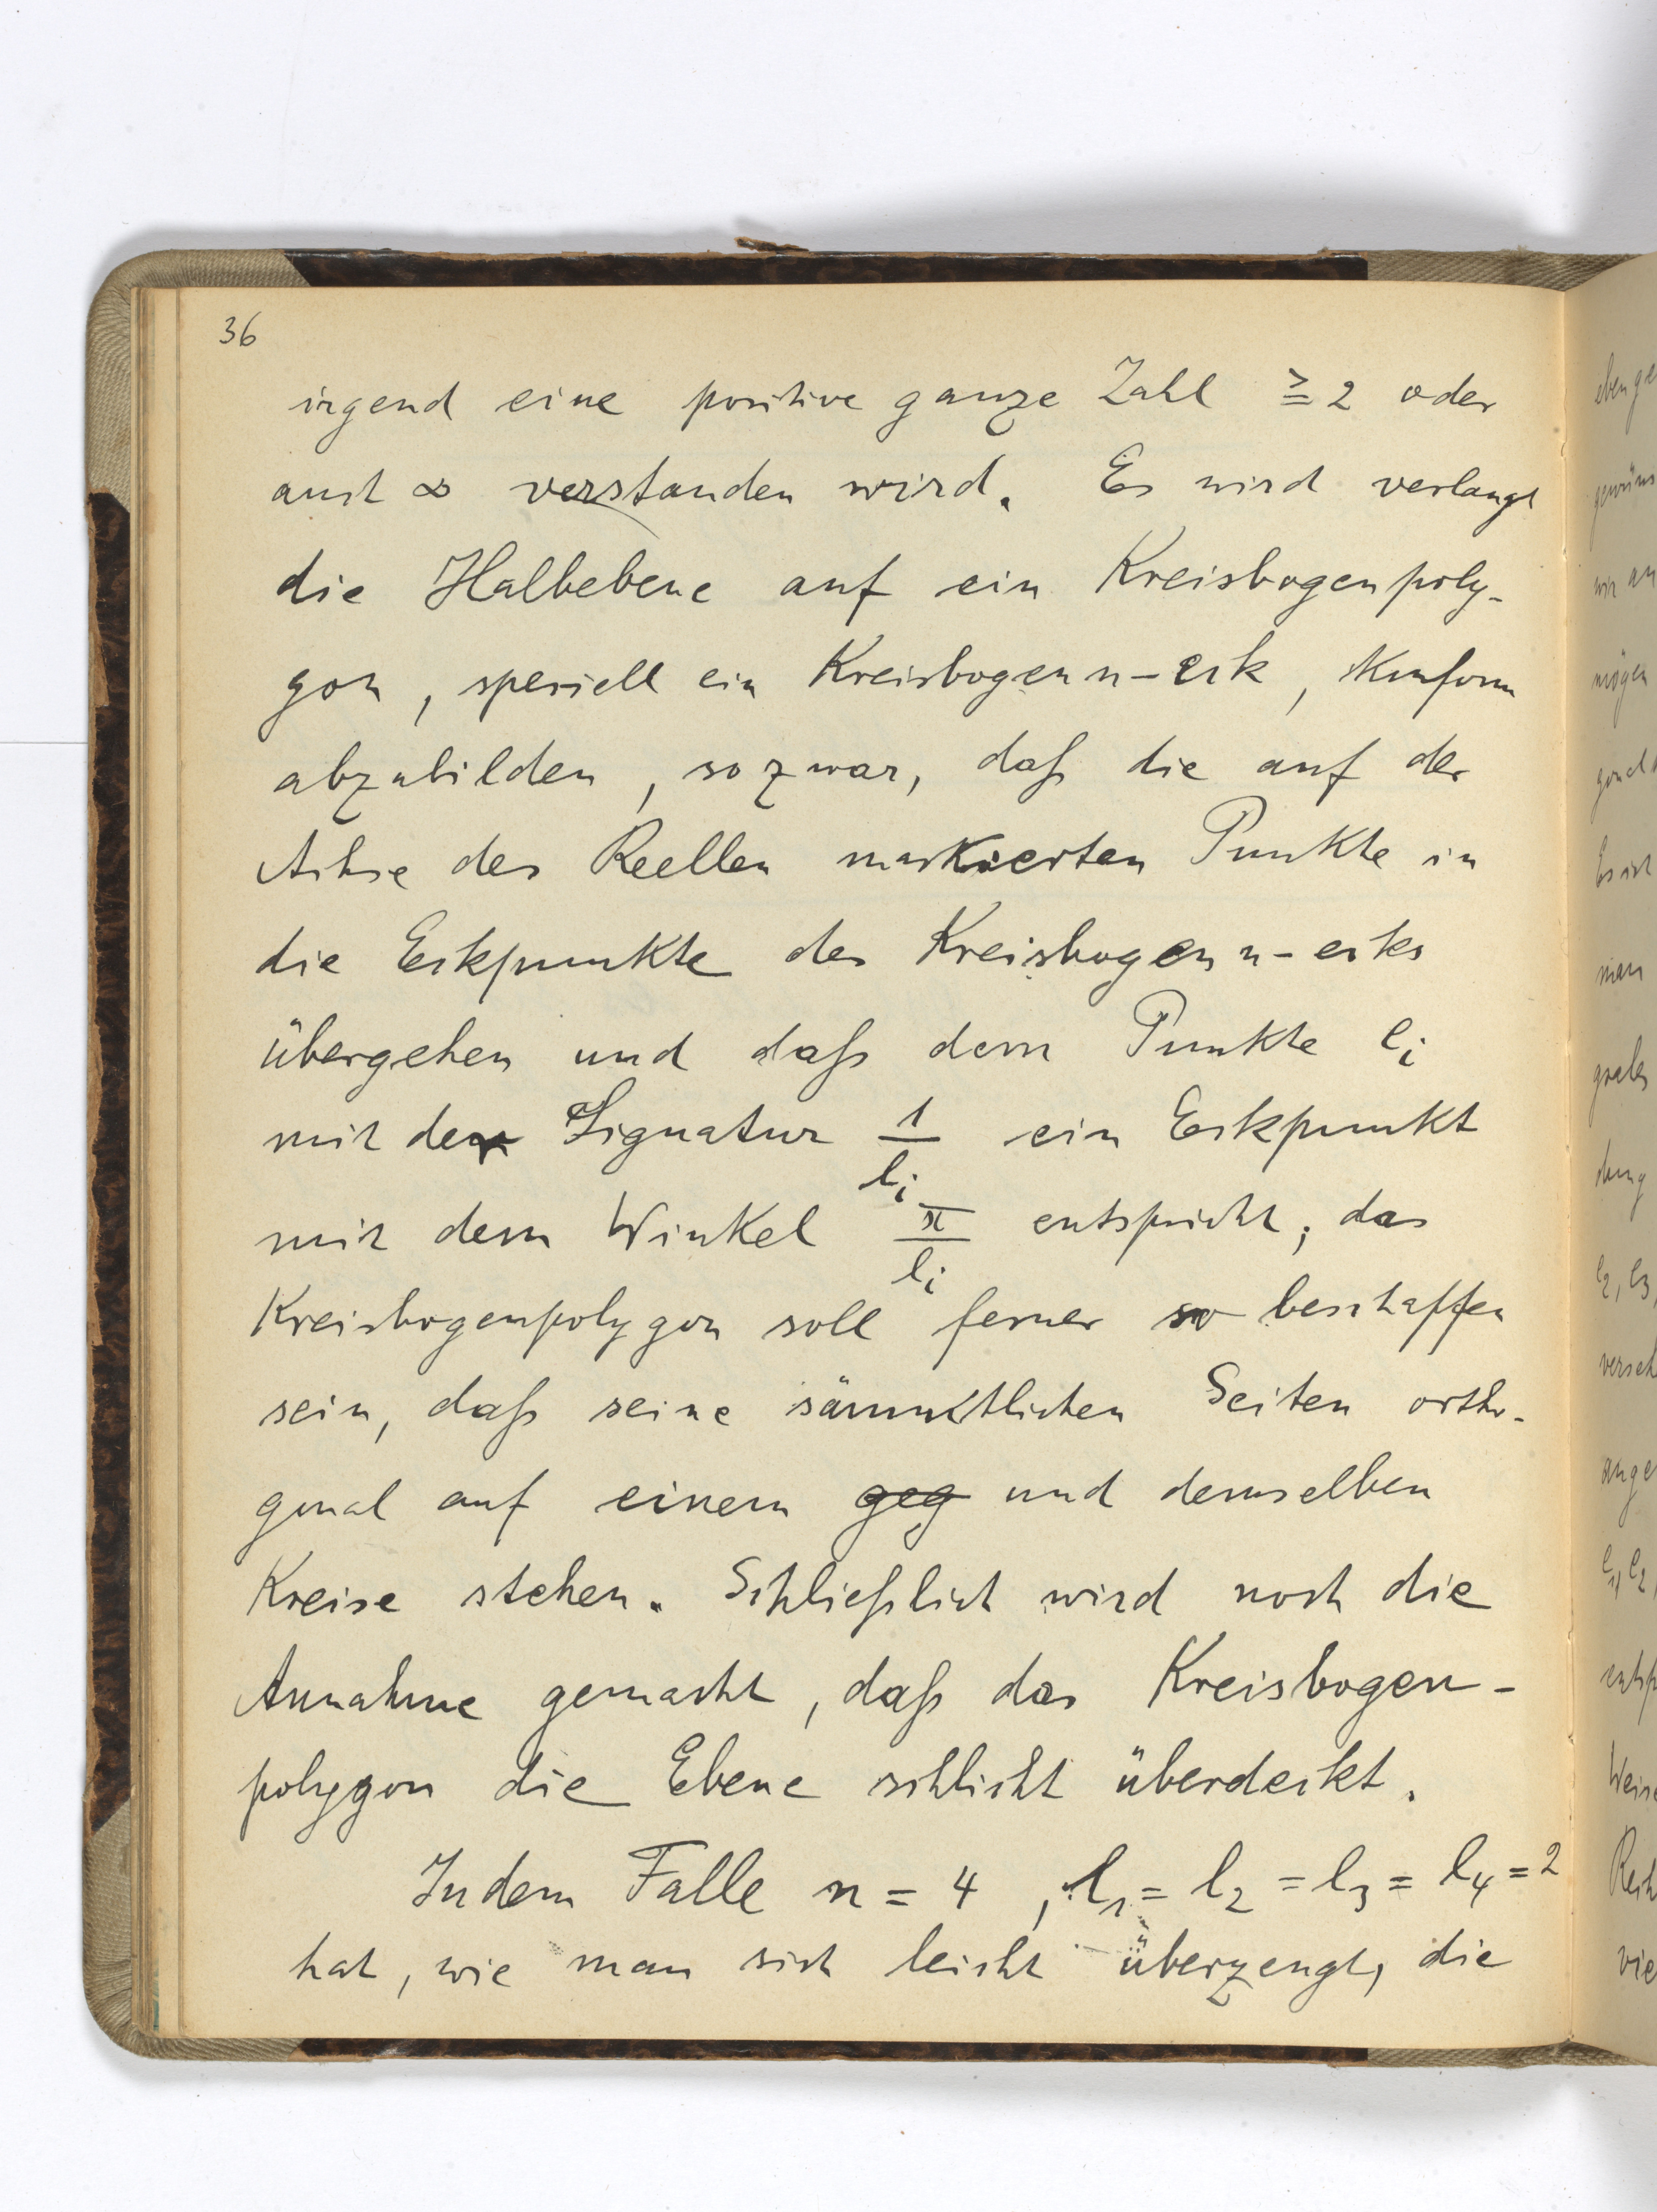 36
irgend eine positive ganze Zahl ≧ 2 oder
auch ∞ verstanden wird. Es wird verlangt
die Halbebene auf ein Kreisbogenpoly-
gon, speziell ein Kreisbogen n-eck, konform
abzubilden, so zwar, daß die auf der
Achse des Reellen markierten Punkte in
die Eckpunkte des Kreisbogen n-ecks
übergehen und daß dem Punkte e_i
mit der Signatur 1/l_i ein Eckpunkt
mit dem Winkel π/l_i entspricht; das
Kreisbogenpolygon soll ferner so beschaffen
sein, daß seine sämmtlichen Seiten ortho-
gonal auf einem geg und demselben
Kreise stehen. Schließlich wird noch die
Annahme gemacht, daß das Kreisbogen-
polygon die Ebene schlicht überdeckt.
In dem Falle n = 4, l_1 = l_2 = l_3 = l_4 = 2
hat, wie man sich leicht überzeugt, die